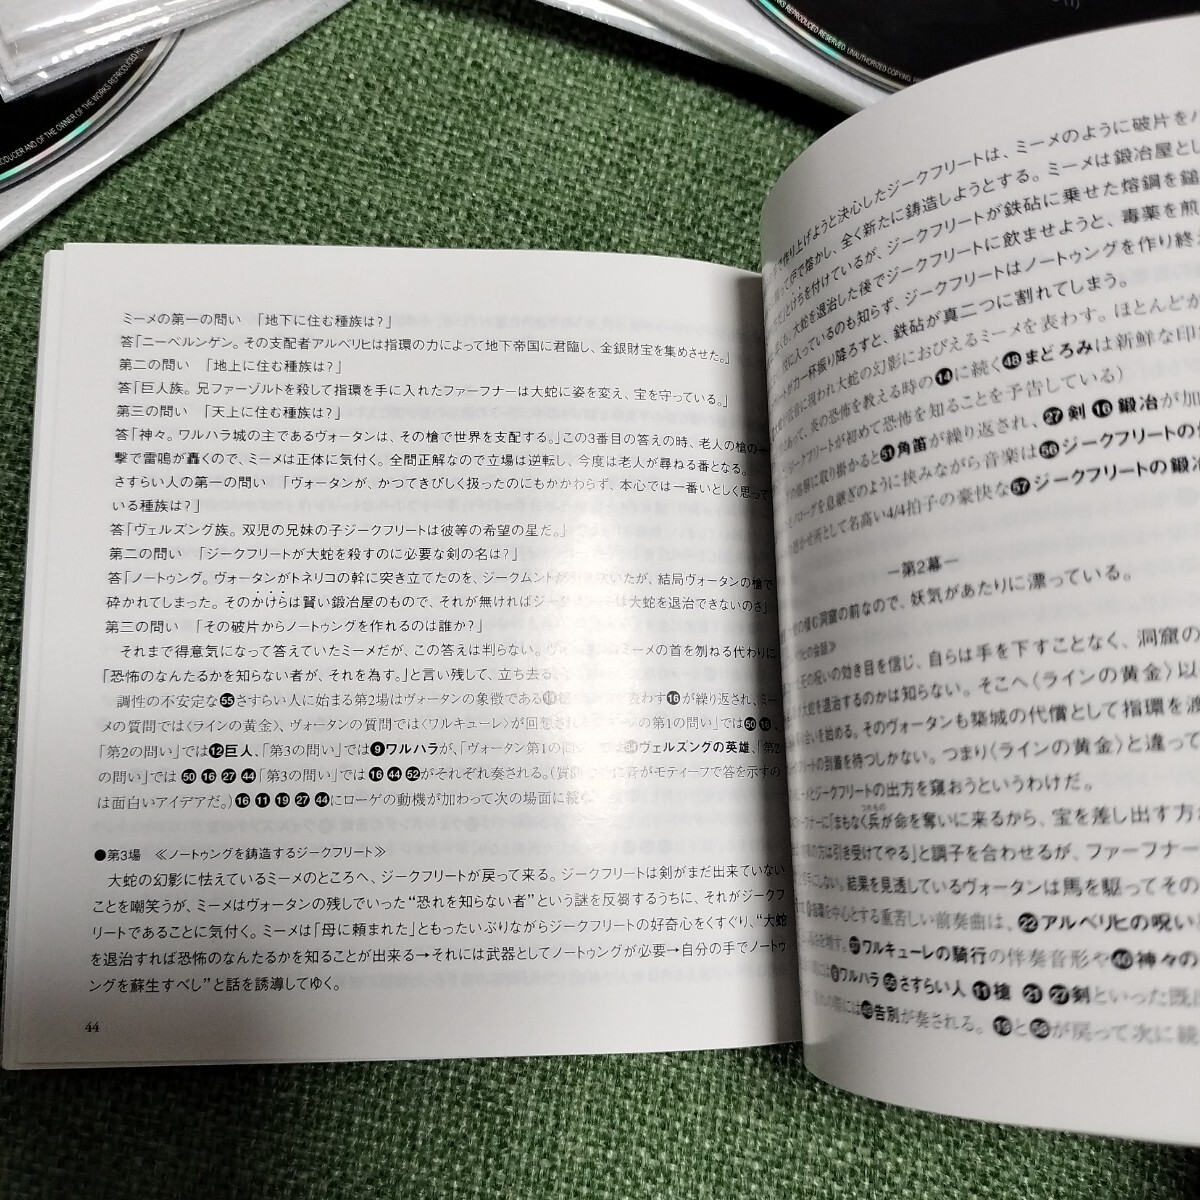 PRODUCER AND OF THE OWNER OF THE WORKS REPRODUCED RE
WORKS REPRODUCED RESERVED. UNAUTHORIZED COPYING,
ミーメの第一の問い 「地下に住む種族は?」
答「ニーベルンゲン。その支配者アルベリヒは指環の力によって地下帝国に君臨し、金銀財宝を集めさせた。」
第二の問い 「地上に住む種族は?」
答「巨人族。兄ファーゾルトを殺して指環を手に入れたファーフナーは大蛇に姿を変え、宝を守っている。」
第三の問い 「天上に住む種族は?」
答「神々。ワルハラ城の主であるヴォータンは、その槍で世界を支配する。」この3番目の答えの時、老人の槍の一
撃で雷鳴が轟くので、ミーメは正体に気付く。全問正解なので立場は逆転し、今度は老人が尋ねる番となる。
さすらい人の第一の問い 「ヴォータンが、かつてきびしく扱ったのにもかかわらず、本心では一番いとしく思って
いる種族は?」
答「ヴェルズング族。双児の兄妹の子ジークフリートは彼等の希望の星だ。」
第二の問い 「ジークフリートが大蛇を殺すのに必要な剣の名は?」
答「ノートゥング。ヴォータンがトネリコの幹に突き立てたのを、ジークムントが いたが、結局ヴォータンの槍で
砕かれてしまった。そのかけらは賢い鍛冶屋のもので、それが無ければジー は大蛇を退治できないのさ」
第三の問い 「その破片からノートゥングを作れるのは誰か?」
それまで得意気になって答えていたミーメだが、この答えは判らない。 ミーメの首を刎ねる代わりに
「恐怖のなんたるかを知らない者が、それを為す。」と言い残して、立ち去る
調性の不安定な55さすらい人に始まる第2場はヴォータンの象徴である 表わす16が繰り返され、ミー
メの質問では〈ラインの黄金〉、ヴォータンの質問では〈ワルキューレ〉が回想 の第1の問い」では50 16、
「第2の問い」では12巨人、「第3の問い」では9ワルハラが、「ヴォータン第1の問 ヴェルズングの英雄、「第2
の問い」では50 16 27 44「第3の問い」では16 44 52がそれぞれ奏される。(質問 に音がモティーフで答を示すの
は面白いアイデアだ。)16 11 19 27 44にローゲの動機が加わって次の場面に続
●第3場 ≪ノートゥングを鋳造するジークフリート≫
大蛇の幻影に怯えているミーメのところへ、ジークフリートが戻って来る。ジークフリートは剣がまだ出来ていない
ことを嘲笑うが、ミーメはヴォータンの残していった“恐れを知らない者”という謎を反芻するうちに、それがジークフ
リートであることに気付く。ミーメは「母に頼まれた」ともったいぶりながらジークフリートの好奇心をくすぐり、“大蛇
を退治すれば恐怖のなんたるかを知ることが出来る→それには武器としてノートゥングが必要→自分の手でノートゥ
ングを蘇生すべし”と話を誘導してゆく。
44
で作り上げようと決心したジークフリートは、ミーメのように破片を
って炉で熔かし、全く新たに鋳造しようとする。ミーメは鍛冶屋とし
とけちを付けているが、ジークフリートが鉄砧に乗せた熔鋼を鎚
も、大蛇を退治した後でジークフリートに飲ませようと、毒薬を煎
に入っているのも知らず、ジークフリートはノートゥングを作り終え
が力一杯振り降ろすと、鉄砧が真二つに割れてしまう。
低音に現われ大蛇の幻影におびえるミーメを表わす。ほとんどが
であって、炎の恐怖を教える時の14に続く48まどろみは新鮮な印
ジークフリートが初めて恐怖を知ることを予告している)
の熔解に取り掛かると51角笛が繰り返され、27剣 16鍛冶が加
ノローグを息継ぎのように挟みながら音楽は56ジークフリートの
聴かせ所として名高い4/4拍子の豪快な57ジークフリートの鍛冶
ー第2幕ー
の棲む洞窟の前なので、妖気があたりに漂っている。
ヒの会話≫
の呪いの効き目を信じ、自らは手を下すことなく、洞窟の
大蛇を退治するのかは知らない。そこへ〈ラインの黄金〉以
合いを始める。そのヴォータンも築城の代償として指環を渡
フリートの到着を待つしかない。つまり〈ラインの黄金〉と違って
ヒとジークフリートの出方を窺おうというわけだ。
ーナーに「まもなく兵が命を奪いに来るから、宝を差し出す方が
の方は引き受けてやる」と調子を合わせるが、ファーフナー
にしない。結果を見透しているヴォータンは馬を駆ってその
を中心とする重苦しい前奏曲は、22アルベリヒの呪い
を増す。 ワルキューレの騎行の伴奏音形や46神々の
ワルハラ 55さすらい人 11槍 21 27剣といった既
には 告別が奏される。19と58が戻って次に続